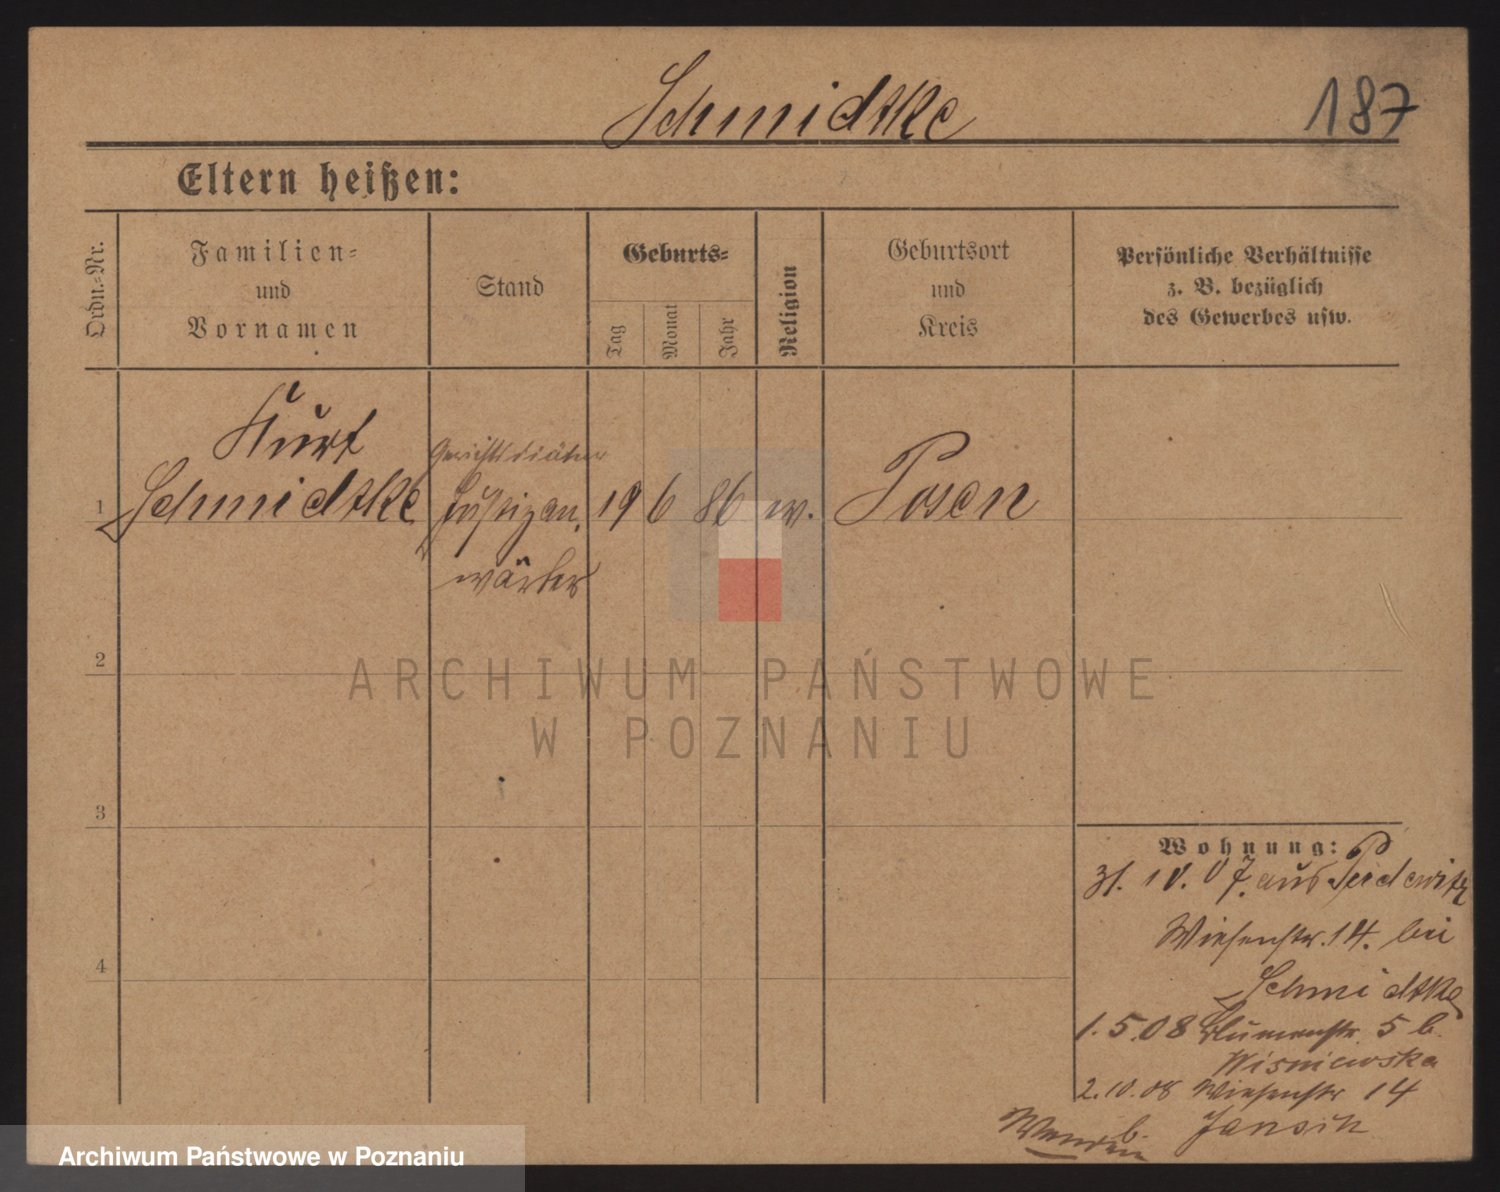 Schmidtke
187
Eltern heißen:
Ordn.-Nr.
Familien=
und
Vornamen
Stand
Geburts=
Tag
Monat
Jahr
Religion
Geburtsort
und
Kreis
Persönliche Verhältnisse
z. B. bezüglich
des Gewerbes usw.
1
Kurt
Schmidtke
Gerichtsdiätar
Justizan,
wärter
19 6 86 w. Posen
2
3
4
ARCHIWUM PAŃSTWOWE
W POZNANIU
Wohnung:
31. 10. 07. aus
Wiesenstr. 14. bei
Schmidtke
1. 5. 08 Blumenstr. 5 b.
Wisniewska
2. 10. 08 Wiesenstr 14
b. Jansik
Archiwum Państwowe w Poznaniu